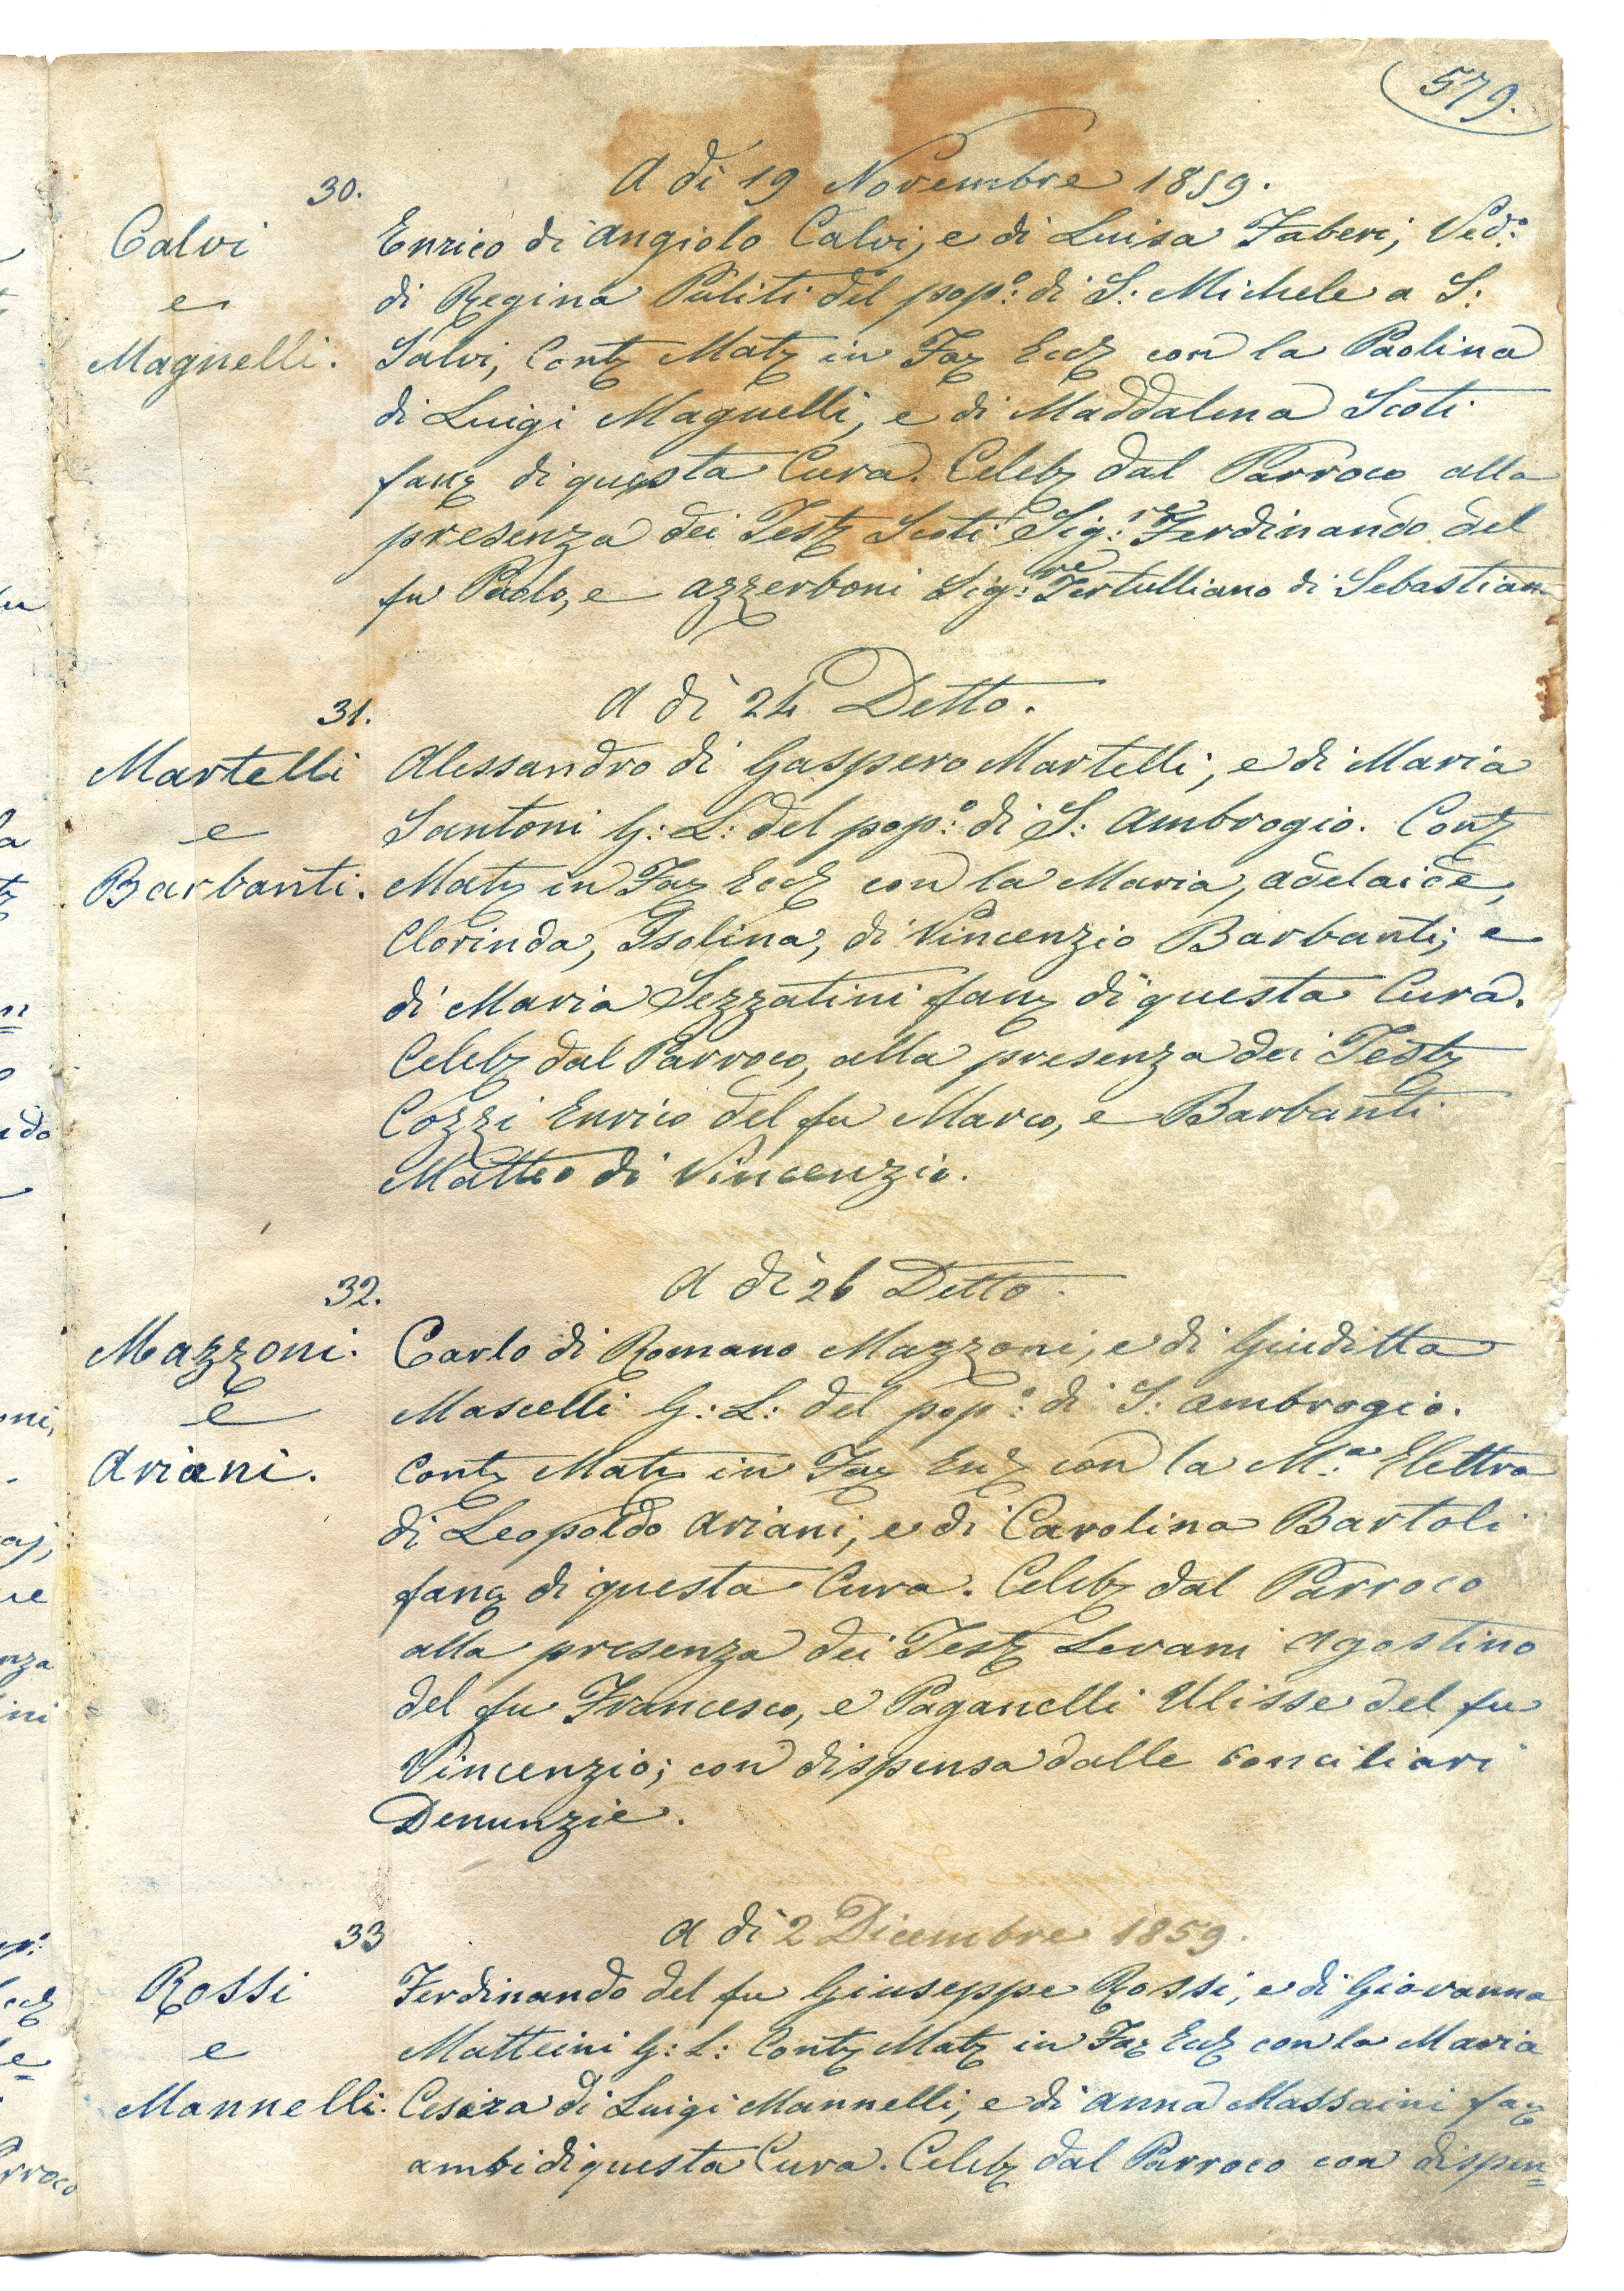 579.
30.
A di 19 Novembre 1859.
Calvi
e
Magnelli.
Enrico di Angiolo Calvi, e di Luisa Faberi, Ved.º
di Regina Puliti del pop.º di S: Michele a S:
Salvi, Contz Matz in Faz Eccz con la Paolina
di Luigi Magnelli, e di Maddalena Scoti
fanz di questa Cura. Celebz dal Parroco alla
presenza dei Testz Scoti Sig.re Ferdinando del
fu Paolo, e Azzerboni Sig.re Tertulliano di Sebastian
31.
A di 24 Detto.
Martelli
e
Barbanti.
Alessandro di Gaspero Martelli, e di Maria
Santoni G: L: del pop.º di S: Ambrogio. Contz
Matz in Faz Eccz con la Maria, Adelaide,
Clorinda, Isolina, di Vincenzio Barbanti; e
di Maria Sezzatini fanz di questa Cura.
Celebz dal Parroco, alla presenza dei Testz
Cozzi Enrico del fu Marco, e Barbanti
Matteo di Vincenzio.
32.
A di 26 Detto.
Mazzoni.
e
Ariani.
Carlo di Romano Mazzoni, e di Giuditta
Mascelli G: L: del pop.º di S: Ambrogio.
Contz Matz in Faz Eccz con la M.a Elettra
di Leopoldo Ariani, e di Carolina Bartoli
fanz di questa Cura. Celebz dal Parroco
alla presenza dei Testz Levani Agostino
del fu Francesco, e Paganelli Ulisse del fu
Vincenzio; con dispensa dalle conciliari
Denunzie.
33
A di 2 Dicembre 1859.
Rossi
e
Mannelli.
Ferdinando del fu Giuseppe Rossi, e di Giovanna
Matteini G: L: Contz Matz in Faz Eccz con la Maria
Cesira di Luigi Mannelli, e di Anna Massaini faz
ambi di questa Cura. Celebz dal Parroco con dispen=